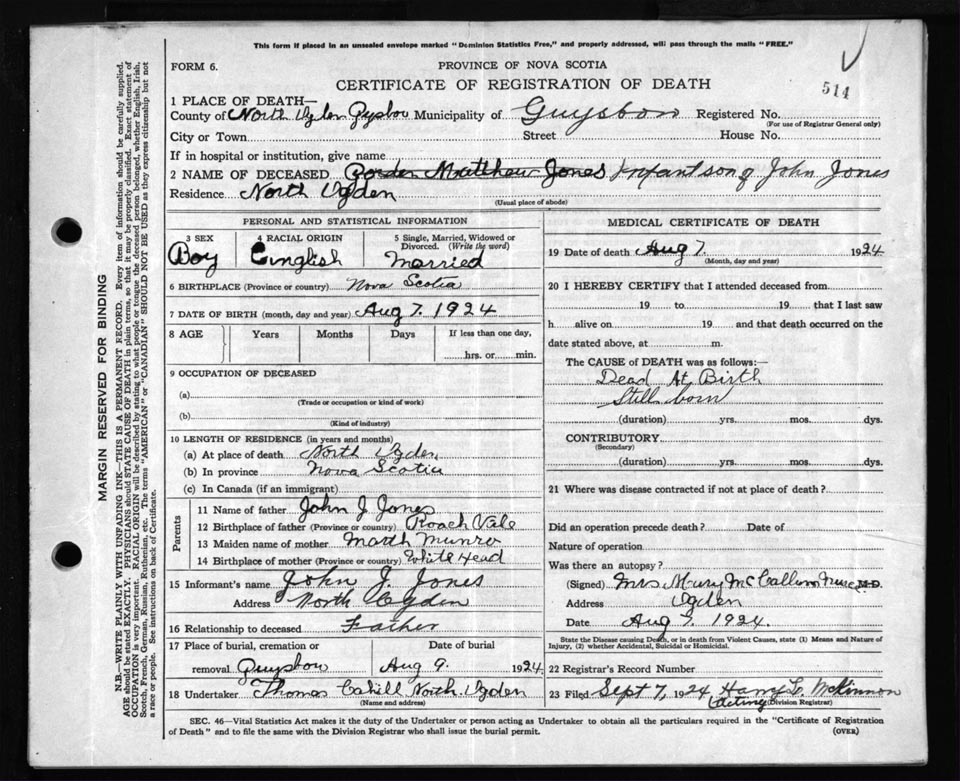 This form if placed in an unsealed envelope marked "Dominion Statistics Free," and properly addressed, will pass through the mails "FREE."
FORM 6.
PROVINCE OF NOVA SCOTIA
CERTIFICATE OF REGISTRATION OF DEATH
514
1 PLACE OF DEATH—
County of North Ogden Gysboo Municipality of Guysboro Registered No.
(For use of Registrar General only)
City or Town Street House No.
If in hospital or institution, give name
2 NAME OF DECEASED Borden Matthew Jones Infant son of John Jones
Residence North Ogden
(Usual place of abode)
PERSONAL AND STATISTICAL INFORMATION
3 SEX 4 RACIAL ORIGIN 5 Single, Married, Widowed or Divorced. (Write the word)
Boy English Married
6 BIRTHPLACE (Province or country) Nova Scotia
7 DATE OF BIRTH (month, day and year) Aug 7. 1924
8 AGE Years Months Days If less than one day,
hrs. or min.
9 OCCUPATION OF DECEASED
(a)
(Trade or occupation or kind of work)
(b)
(Kind of industry)
10 LENGTH OF RESIDENCE (in years and months)
(a) At place of death North Ogden
(b) In province Nova Scotia
(c) In Canada (if an immigrant)
Parents
11 Name of father John J Jones
12 Birthplace of father (Province or country) Roach Vale
13 Maiden name of mother Marth Munro
14 Birthplace of mother (Province or country) White Head
15 Informant's name John J. Jones
Address North Ogden
16 Relationship to deceased Father
17 Place of burial, cremation or Date of burial
removal Guysboro Aug 9. 1924
18 Undertaker Thomas Cahill North Ogden
(Name and address)
MEDICAL CERTIFICATE OF DEATH
19 Date of death Aug 7. 1924
(Month, day and year)
20 I HEREBY CERTIFY that I attended deceased from
19 to 19 that I last saw
h alive on 19 and that death occurred on the
date stated above, at m.
The CAUSE of DEATH was as follows:—
Dead At Birth
Still born
(duration) yrs. mos. dys.
CONTRIBUTORY
(Secondary)
(duration) yrs. mos. dys.
21 Where was disease contracted if not at place of death?
Did an operation precede death? Date of
Nature of operation
Was there an autopsy?
(Signed) Mrs Mury McCallum Nurse M.D.
Address Ogden
Date Aug 7. 1924.
State the Disease causing Death, or in death from Violent Causes, state (1) Means and Nature of
Injury, (2) whether Accidental, Suicidal or Homicidal.
22 Registrar's Record Number
23 Filed Sept 7, 1924 Harry L. McKinnon
(Acting) (Division Registrar)
SEC. 46—Vital Statistics Act makes it the duty of the Undertaker or person acting as Undertaker to obtain all the particulars required in the "Certificate of Registration
of Death" and to file the same with the Division Registrar who shall issue the burial permit.
(OVER)
MARGIN RESERVED FOR BINDING
N.B.—WRITE PLAINLY WITH UNFADING INK—THIS IS A PERMANENT RECORD. Every item of information should be carefully supplied.
AGE should be stated EXACTLY. PHYSICIANS should STATE CAUSE OF DEATH in plain terms, so that it may be properly classified. Exact statement of
OCCUPATION is very important. RACIAL ORIGIN will be described by stating to what people or tongue the deceased person belonged, whether English, Irish,
Scotch, French, German, Russian, Ruthenian, etc. The terms "AMERICAN" or "CANADIAN" SHOULD NOT BE USED as they express citizenship but not
a race or people. See instructions on back of Certificate.